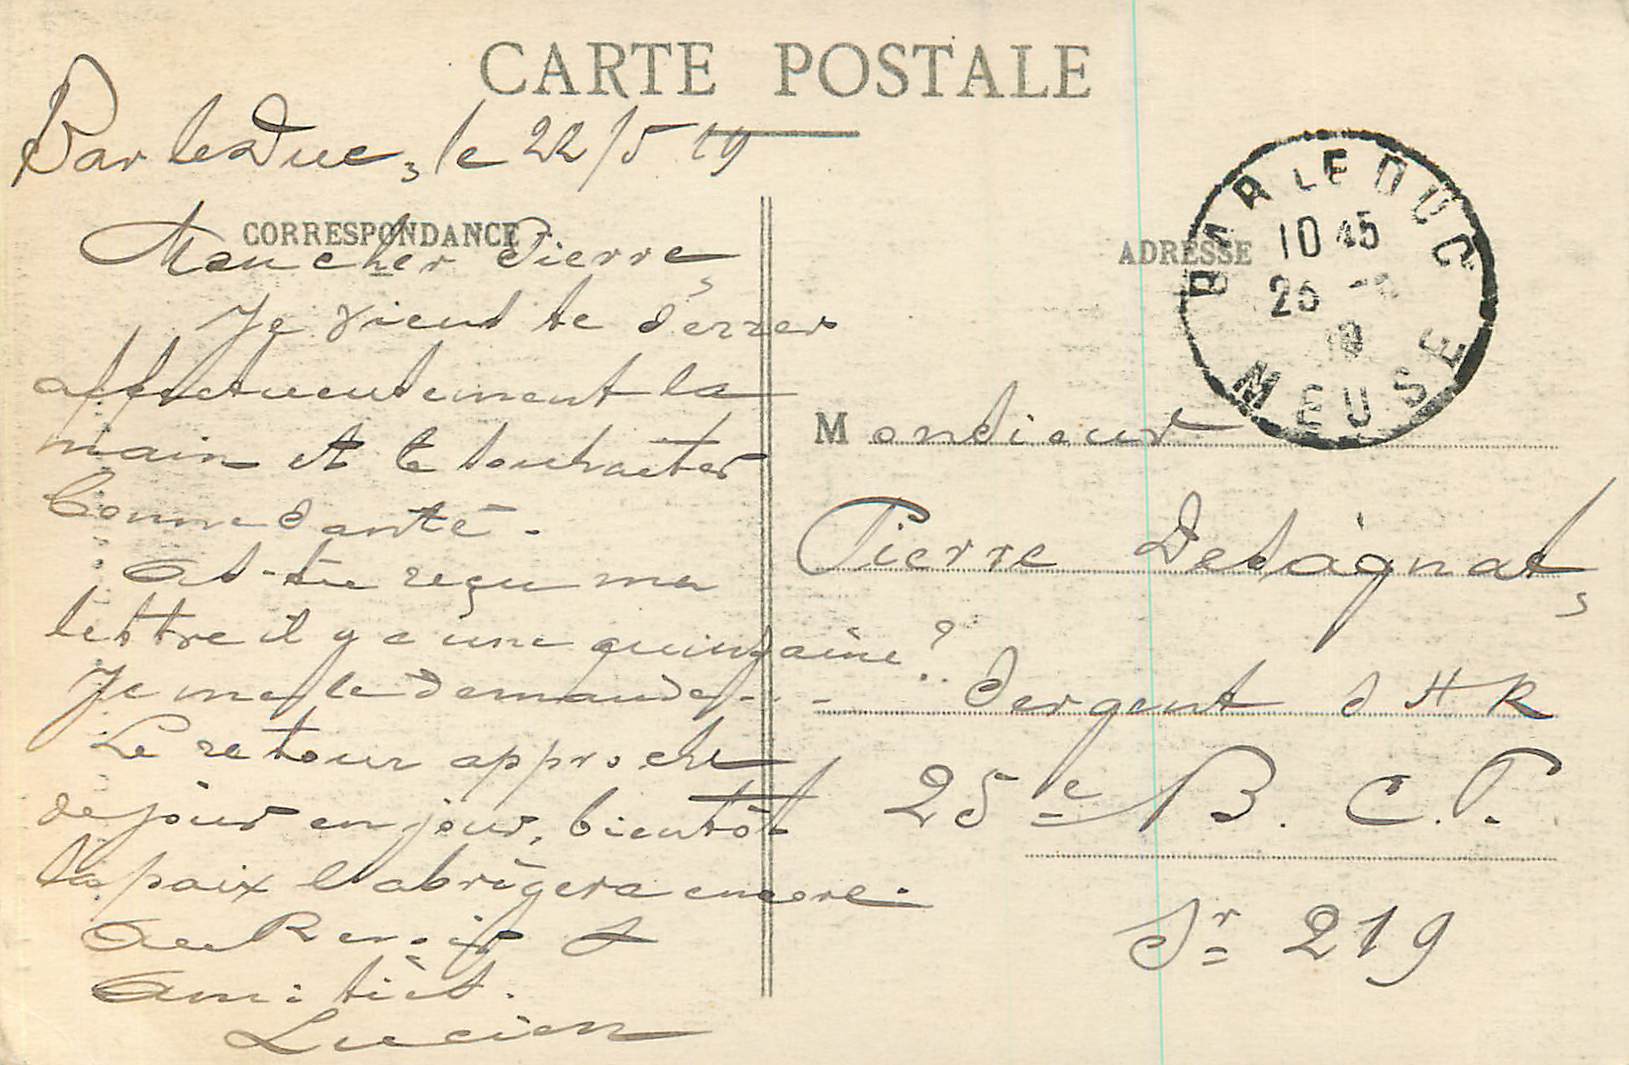 CARTE POSTALE
Bar le Duc, le 22/5 19
CORRESPONDANCE
Mon cher Pierre,
Je vient te serrer
affectueusement la
main et te souhaiter
bonne santé.
As-tu reçu ma
lettre il y a une quinzaine ?
Je me le demande...
Le retour approche
de jour en jour, bientôt
la paix l'abrègera encore.
Au Revoir et
Amitiés.
Lucien
ADRESSE
BAR LE DUC
10 45
25
MEUSE
Monsieur
Pierre
Sergent
25e B. C. P.
Sr 219